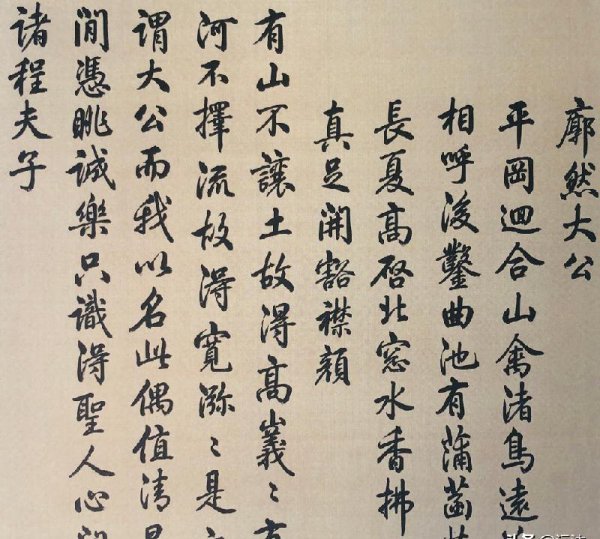 廓然大公
平岡迴合山禽渚鳥遠
相呼後鑿曲池有蒲菡
長夏高啓北窓水香拂
真足開豁襟顏
有山不讓土故得高嶬〻有
河不擇流故得寬瀰〻是
謂大公而我以名此偶值清
閒憑眺誠樂只識得聖人心
諸程夫子